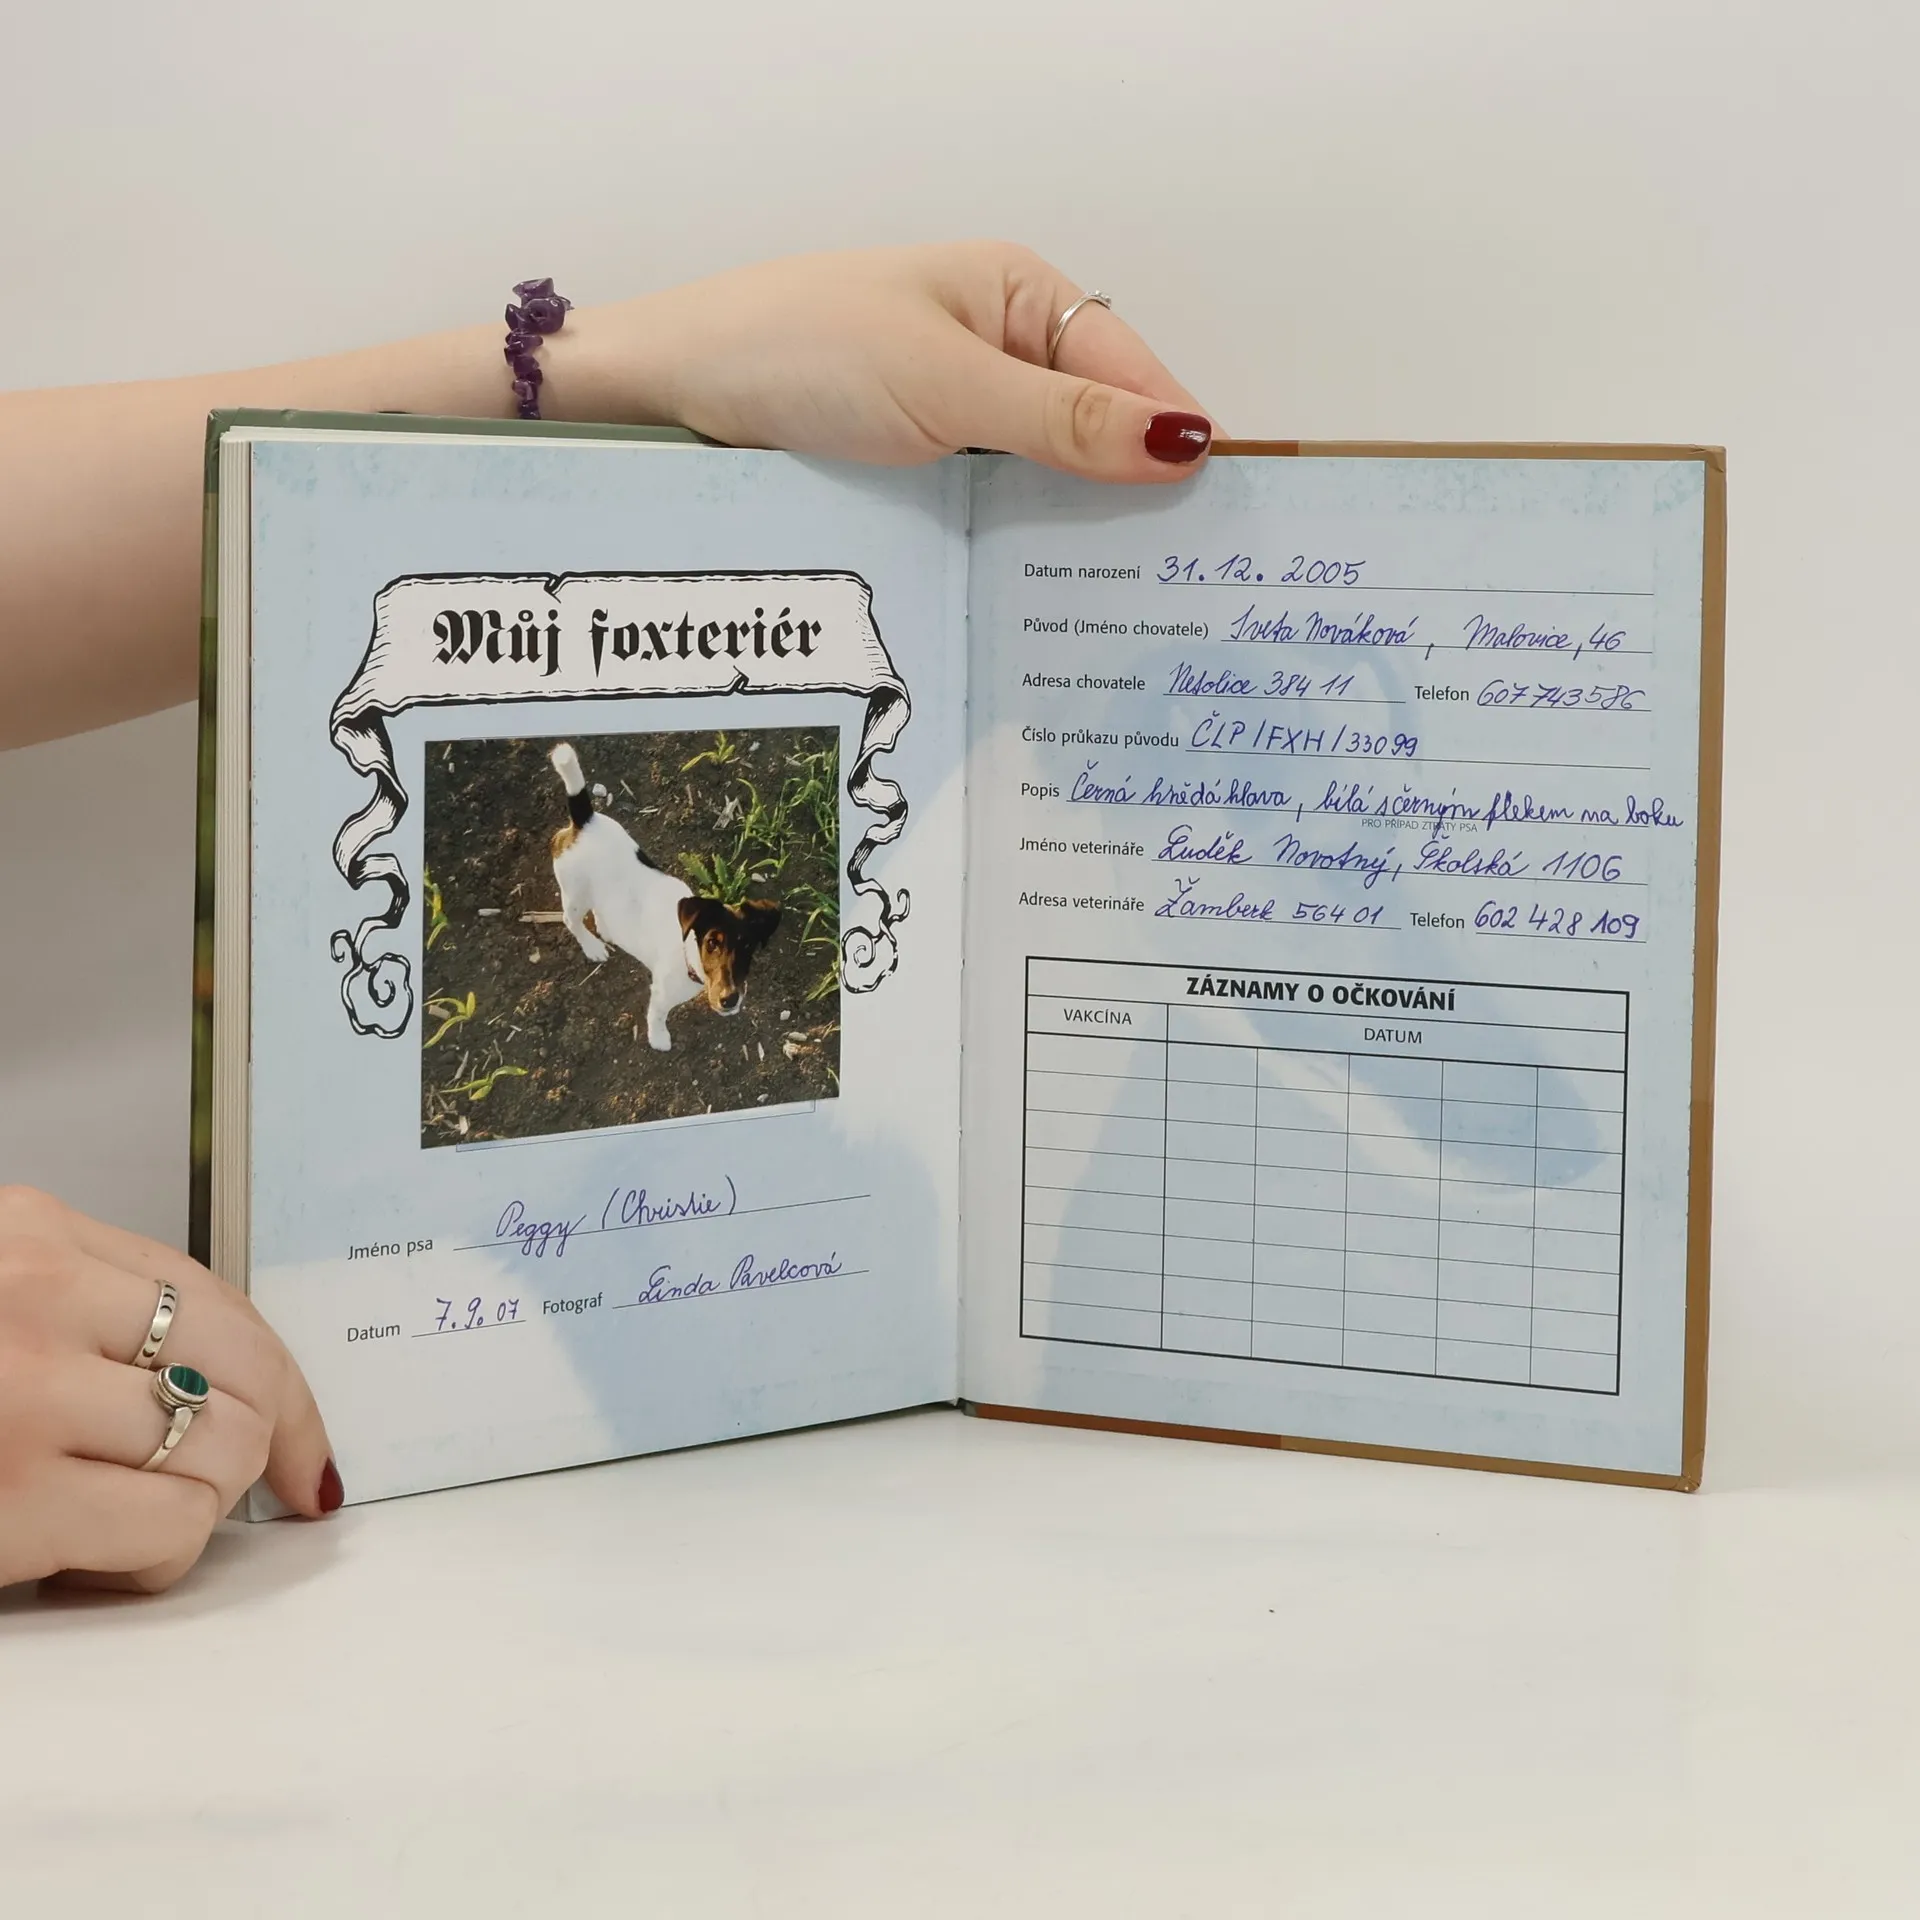 Můj foxteriér
Jméno psa Peggy (Christie)
Datum 7.9.07 Fotograf Linda Pavelcová
Datum narození 31.12.2005
Původ (Jméno chovatele) Iveta Nováková, Malovice, 46
Adresa chovatele Netolice 384 11 Telefon 607 743 586
Číslo průkazu původu ČLP/FXH/33099
Popis Černá hnědá hlava, bílá s černým flekem na boku
PRO PŘÍPAD ZTRÁTY PSA
Jméno veterináře Luděk Novotný, Školská 1106
Adresa veterináře Žamberk 564 01 Telefon 602 428 109
ZÁZNAMY O OČKOVÁNÍ
VAKCÍNA DATUM